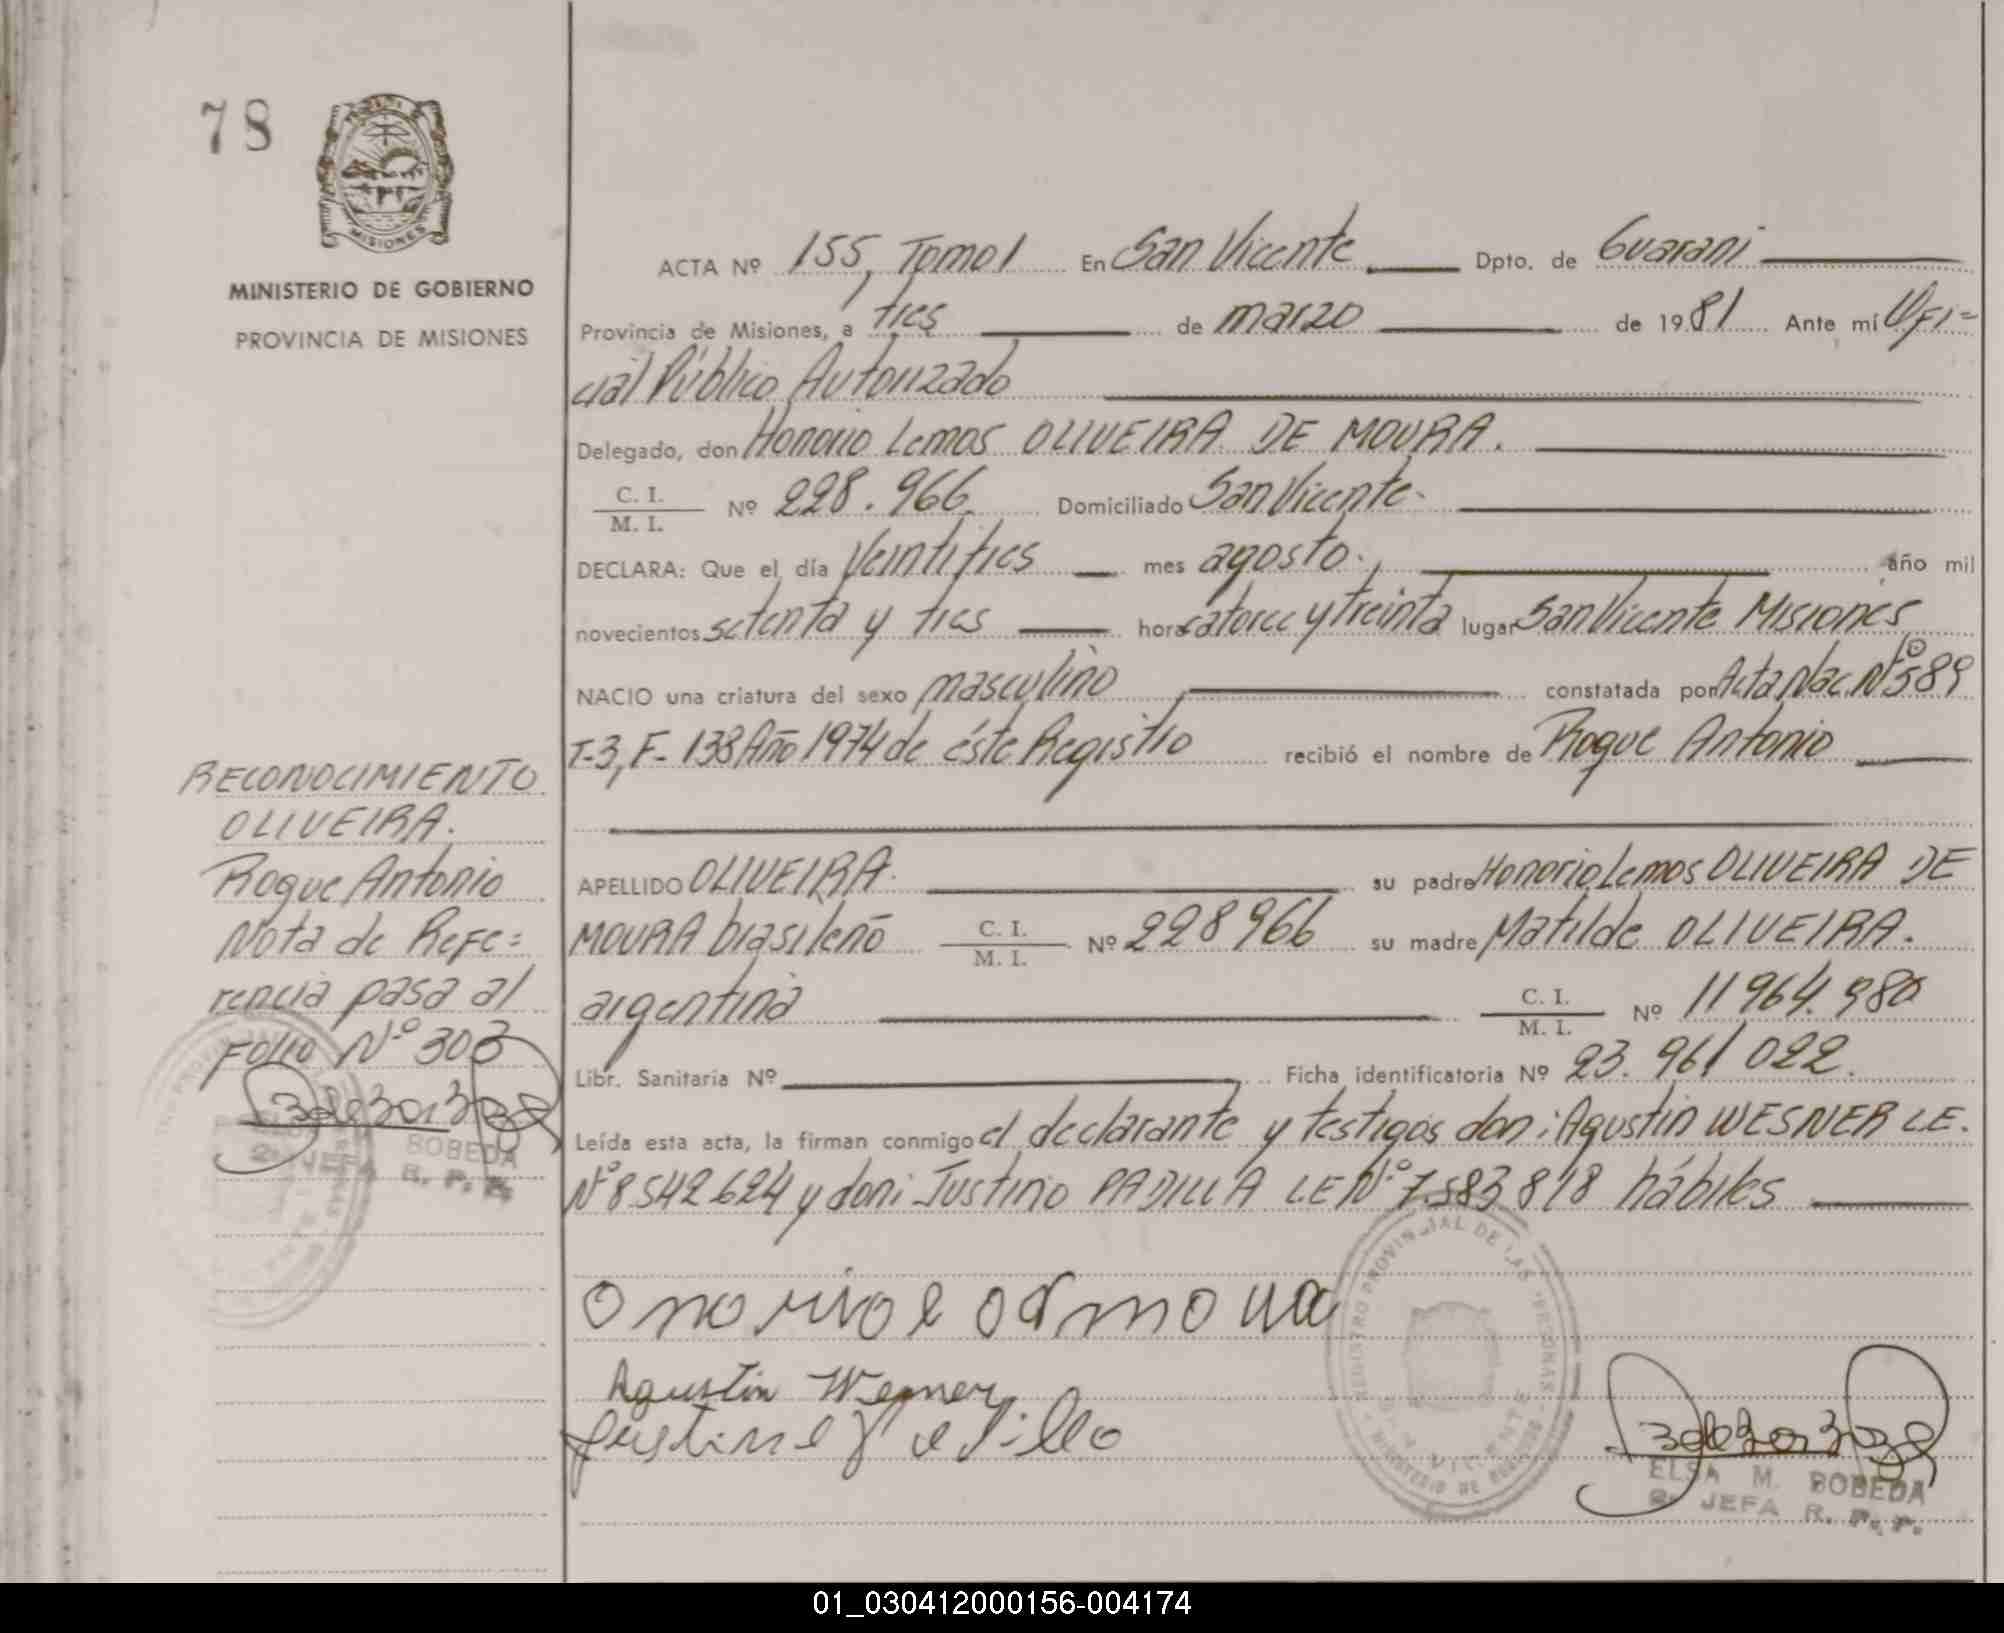 78
MISIONES
MINISTERIO DE GOBIERNO
PROVINCIA DE MISIONES
ACTA Nº 155, Tomo I En San Vicente Dpto. de Guaraní
Provincia de Misiones, a tres de marzo de 1981 Ante mí Ofi=
cial Público Autorizado
Delegado, don Honorio Lemos OLIVEIRA DE MOURA.
C. I.
M. I. Nº 228.966. Domiciliado San Vicente.
DECLARA: Que el día Veintitres mes agosto. año mil
novecientos setenta y tres hora catorce y treinta lugar San Vicente Misiones
NACIO una criatura del sexo masculino constatada por Acta Nac. Nº 589
T-3, F- 138 Año 1974 de éste Registro recibió el nombre de Roque Antonio
APELLIDO OLIVEIRA. su padre Honorio Lemos OLIVEIRA DE
MOURA brasileño C. I.
M. I. Nº 228966 su madre Matilde OLIVEIRA.
argentina C. I.
M. I. Nº 11964.980
Libr. Sanitaria Nº Ficha identificatoria Nº 23.961022.
Leída esta acta, la firman conmigo el declarante y testigos don: Agustin WESNER LE.
Nº 8.542624 y don: Justino PADILLA LE Nº 7.583818 hábiles
RECONOCIMIENTO
OLIVEIRA.
Roque Antonio
Nota de Refe=
rencia pasa al
Folio Nº 303
BOBEDA
2ª JEFA R. P. P.
Agustin Wesner
REGISTRO PROVINCIAL DE LAS PERSONAS
SAN VICENTE
MINISTERIO DE
ELSA M. BOBEDA
2ª JEFA R. P. P.
01_030412000156-004174